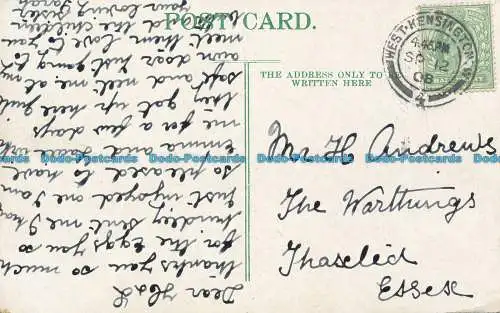 POST CARD.
THE ADDRESS ONLY TO BE
WRITTEN HERE
WEST KENSINGTON. W
4.45 AM
SP 12
08
4
Mr H Andrews
The Warthings
Thaxted
Essex
Dear H & L
thanks you so much
for the Eggs you so
kindley sent me I have
just injoyed one I am
so pleased to have
Emma and Jack with
me for a few days
they got up here quite
safe and met me at my
own door just going to
meet them love to you
& the children
your loving
Sister
Sarah
Dodo-Postcards Dodo-Postcards Dodo-Postcards Dodo-Postcards Dodo-Postcards Dodo-Postcards